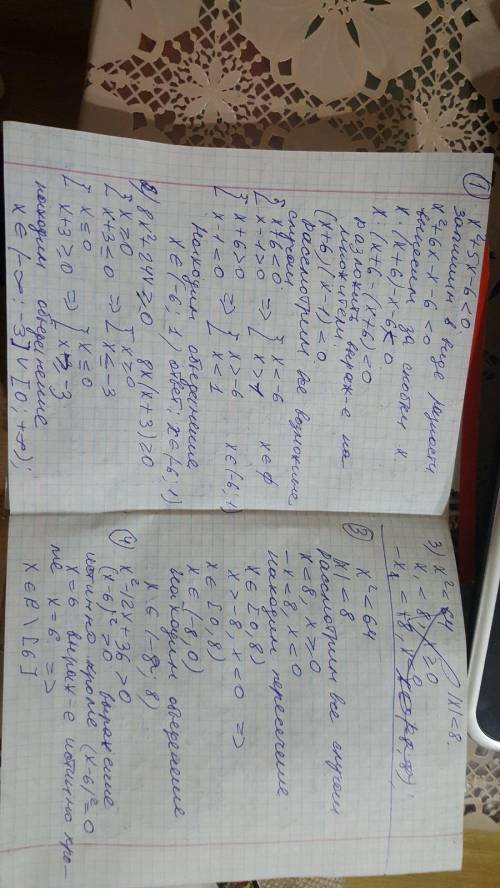 ① x²+5x-6<0
Запишим в виде разности
x²+6x-x-6<0
вынесим за скобки x
x·(x+6)-x-6<0
x·(x+6-(x+6)<0
разложить выраж-е на
множители.
(x+6)(x-1)<0
рассмотрим все возможные
случаи
{ x+6<0
[ { x-1>0 => [ { x<-6
x>1 x∈ф
[ { x+6>0
x-1<0 => [ { x>-6
x<1 x∈(-6;1)
Находим объединение
x∈(-6;1) ответ: x∈(-6;1)
2) 8x²+24x≥0 8x(x+3)≥0
[ { x≥0
x+3≤0 => [ { x≥0
x≤-3
[ { x≤0
x+3≥0 => [ { x≤0
x≥-3
находим объединение
x∈(-∞;-3]∨[0;+∞);
3) x²<64 |x|<8.
x₁<8, x≥0
③ x²<64
|x|<8
рассмотрим все случаи
x<8, x≥0
-x<8, x<0
находим пересечение
x∈[0,8)
x>-8, x<0 =>
x∈[0,8)
x∈(-8,0)
находим объеденение
x∈(-8;8)
④ x²-12x+36>0
(x-6)²>0 выражение
истинно кроме (x-6)²=0
x=6 выраж-е истинно кро-
ме x=6 =>
x∈R\[6]